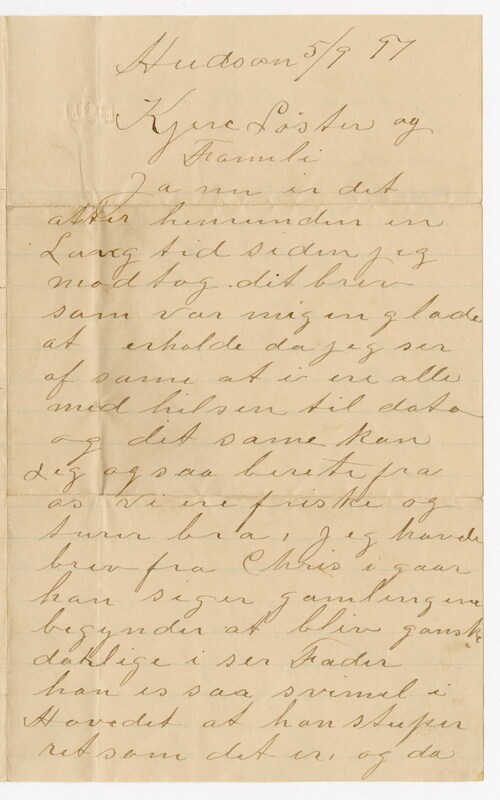 Hudson 5/9 97
Kjere Söster og
Famili
Ja nu er det
atter henrunden en
Lang tid siden jeg
modtog dit brev
som var mig en glæde
at erholde da jeg ser
af same at i ere alle
med hilsen til dato
og dit same kan
Jeg ogsaa berete fra
os vi ere friske og
turer bra, Jeg havde
brev fra Chris i gaar
han siger gamlingene
begynder at bliv ganske
daklige i ser Fader
han es saa svimel i
Hovedet at han stuper
ret som det er, og da